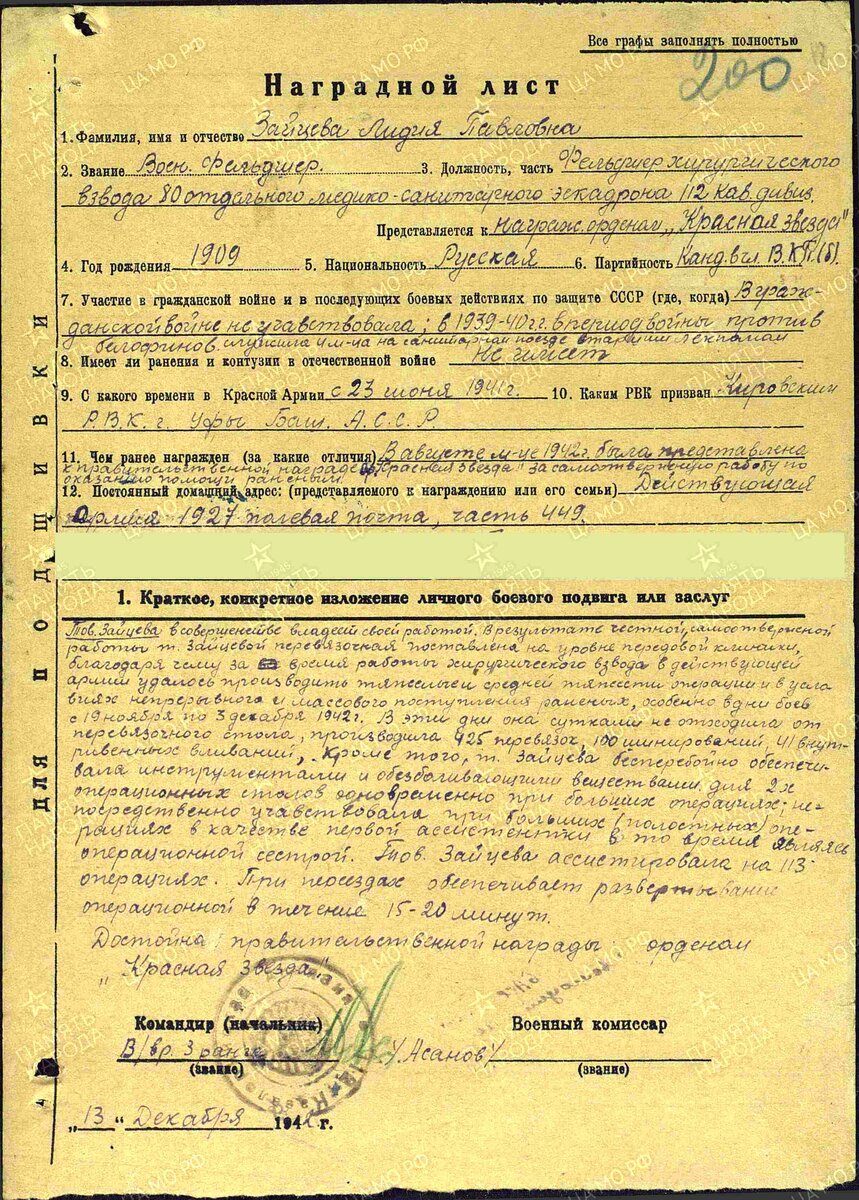 Все графы заполнять полностью
200
Наградной лист
1. Фамилия, имя и отчество Зайцева Лидия Павловна
2. Звание Воен. Фельдшер. 3. Должность, часть Фельдшер хирургического
взвода 80 отдельного медико-санитарного эскадрона 112 Кав. дивиз.
Представляется к награж. орденом „Красная звезда"
4. Год рождения 1909 5. Национальность Русская 6. Партийность Канд. вчл. В.К.П.(б).
7. Участие в гражданской войне и в последующих боевых действиях по защите СССР (где, когда) В граж-
данской войне не учавствовала; в 1939-40 г.г. в период войны против
белофинов служила 4 м-ца на санитарном поезде старшим лекпомом
8. Имеет ли ранения и контузии в отечественной войне Не имеет
9. С какого времени в Красной Армии с 23 июня 1941 г. 10. Каким РВК призван Кировским
Р.В.К. г. Уфы Баш. А.С.С.Р
11. Чем ранее награжден (за какие отличия) В августе м-це 1942 г. была представлена
к правительственной награде „Красная звезда" за самоотверженную работу по
оказанию помощи раненым
12. Постоянный домашний адрес: (представляемого к награждению или его семьи) Действующая
Армия 1927 полевая почта, часть 449.
1. Краткое, конкретное изложение личного боевого подвига или заслуг
Тов. Зайцева в совершенстве владеет своей работой. В результате честной, самоотверженной
работы т. Зайцевой перевязочная поставлена на уровне передовой клиники,
благодаря чему за время работы хирургического взвода в действующей
армии удалось производить тяжелые и средней тяжести операции и в усла
виях непрерывного и массового поступления раненых, особенно в дни боев
с 19 ноября по 3 декабря 1942 г. В эти дни она сутками не отходила от
перевязочного стола, произвдила 425 перевязок, 100 шинирований, 41 внут-
ривенных вливаний. Кроме того, т. Зайцева бесперебойно обеспечи-
вала инструментами и обезбаливающими веществами для 2х
операционных столов одновременно при больших операциях; не-
посредственно учавствовала при больших (полостных) опе-
рациях в качестве первой ассистентки в то время являясь
операционной сестрой. Тов. Зайцева ассистировала на 113
операциях. При переездах обеспечивает развертывание
операционной в течение 15-20 минут.
Достойна правительственной награды орденом
„Красная Звезда"
Командир (начальник) Военный комиссар
В/вр. 3 ранга /Асанов/
(звание) (звание)
„13" Декабря 1942 г.
ДЛЯ ПОДШИВКИ
ЦА МО РФ
ПАМЯТЬ НАРОДА
1945